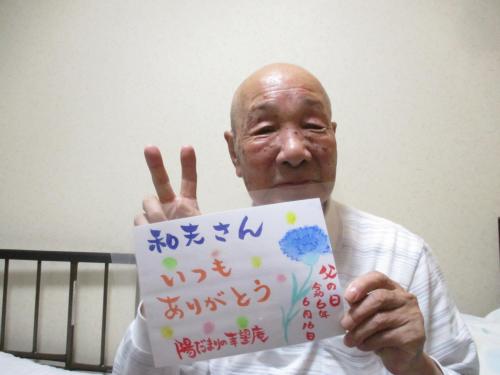 和夫さん
いつも
ありがとう
陽だまりの幸望庵
父の日
令和6年
6月16日